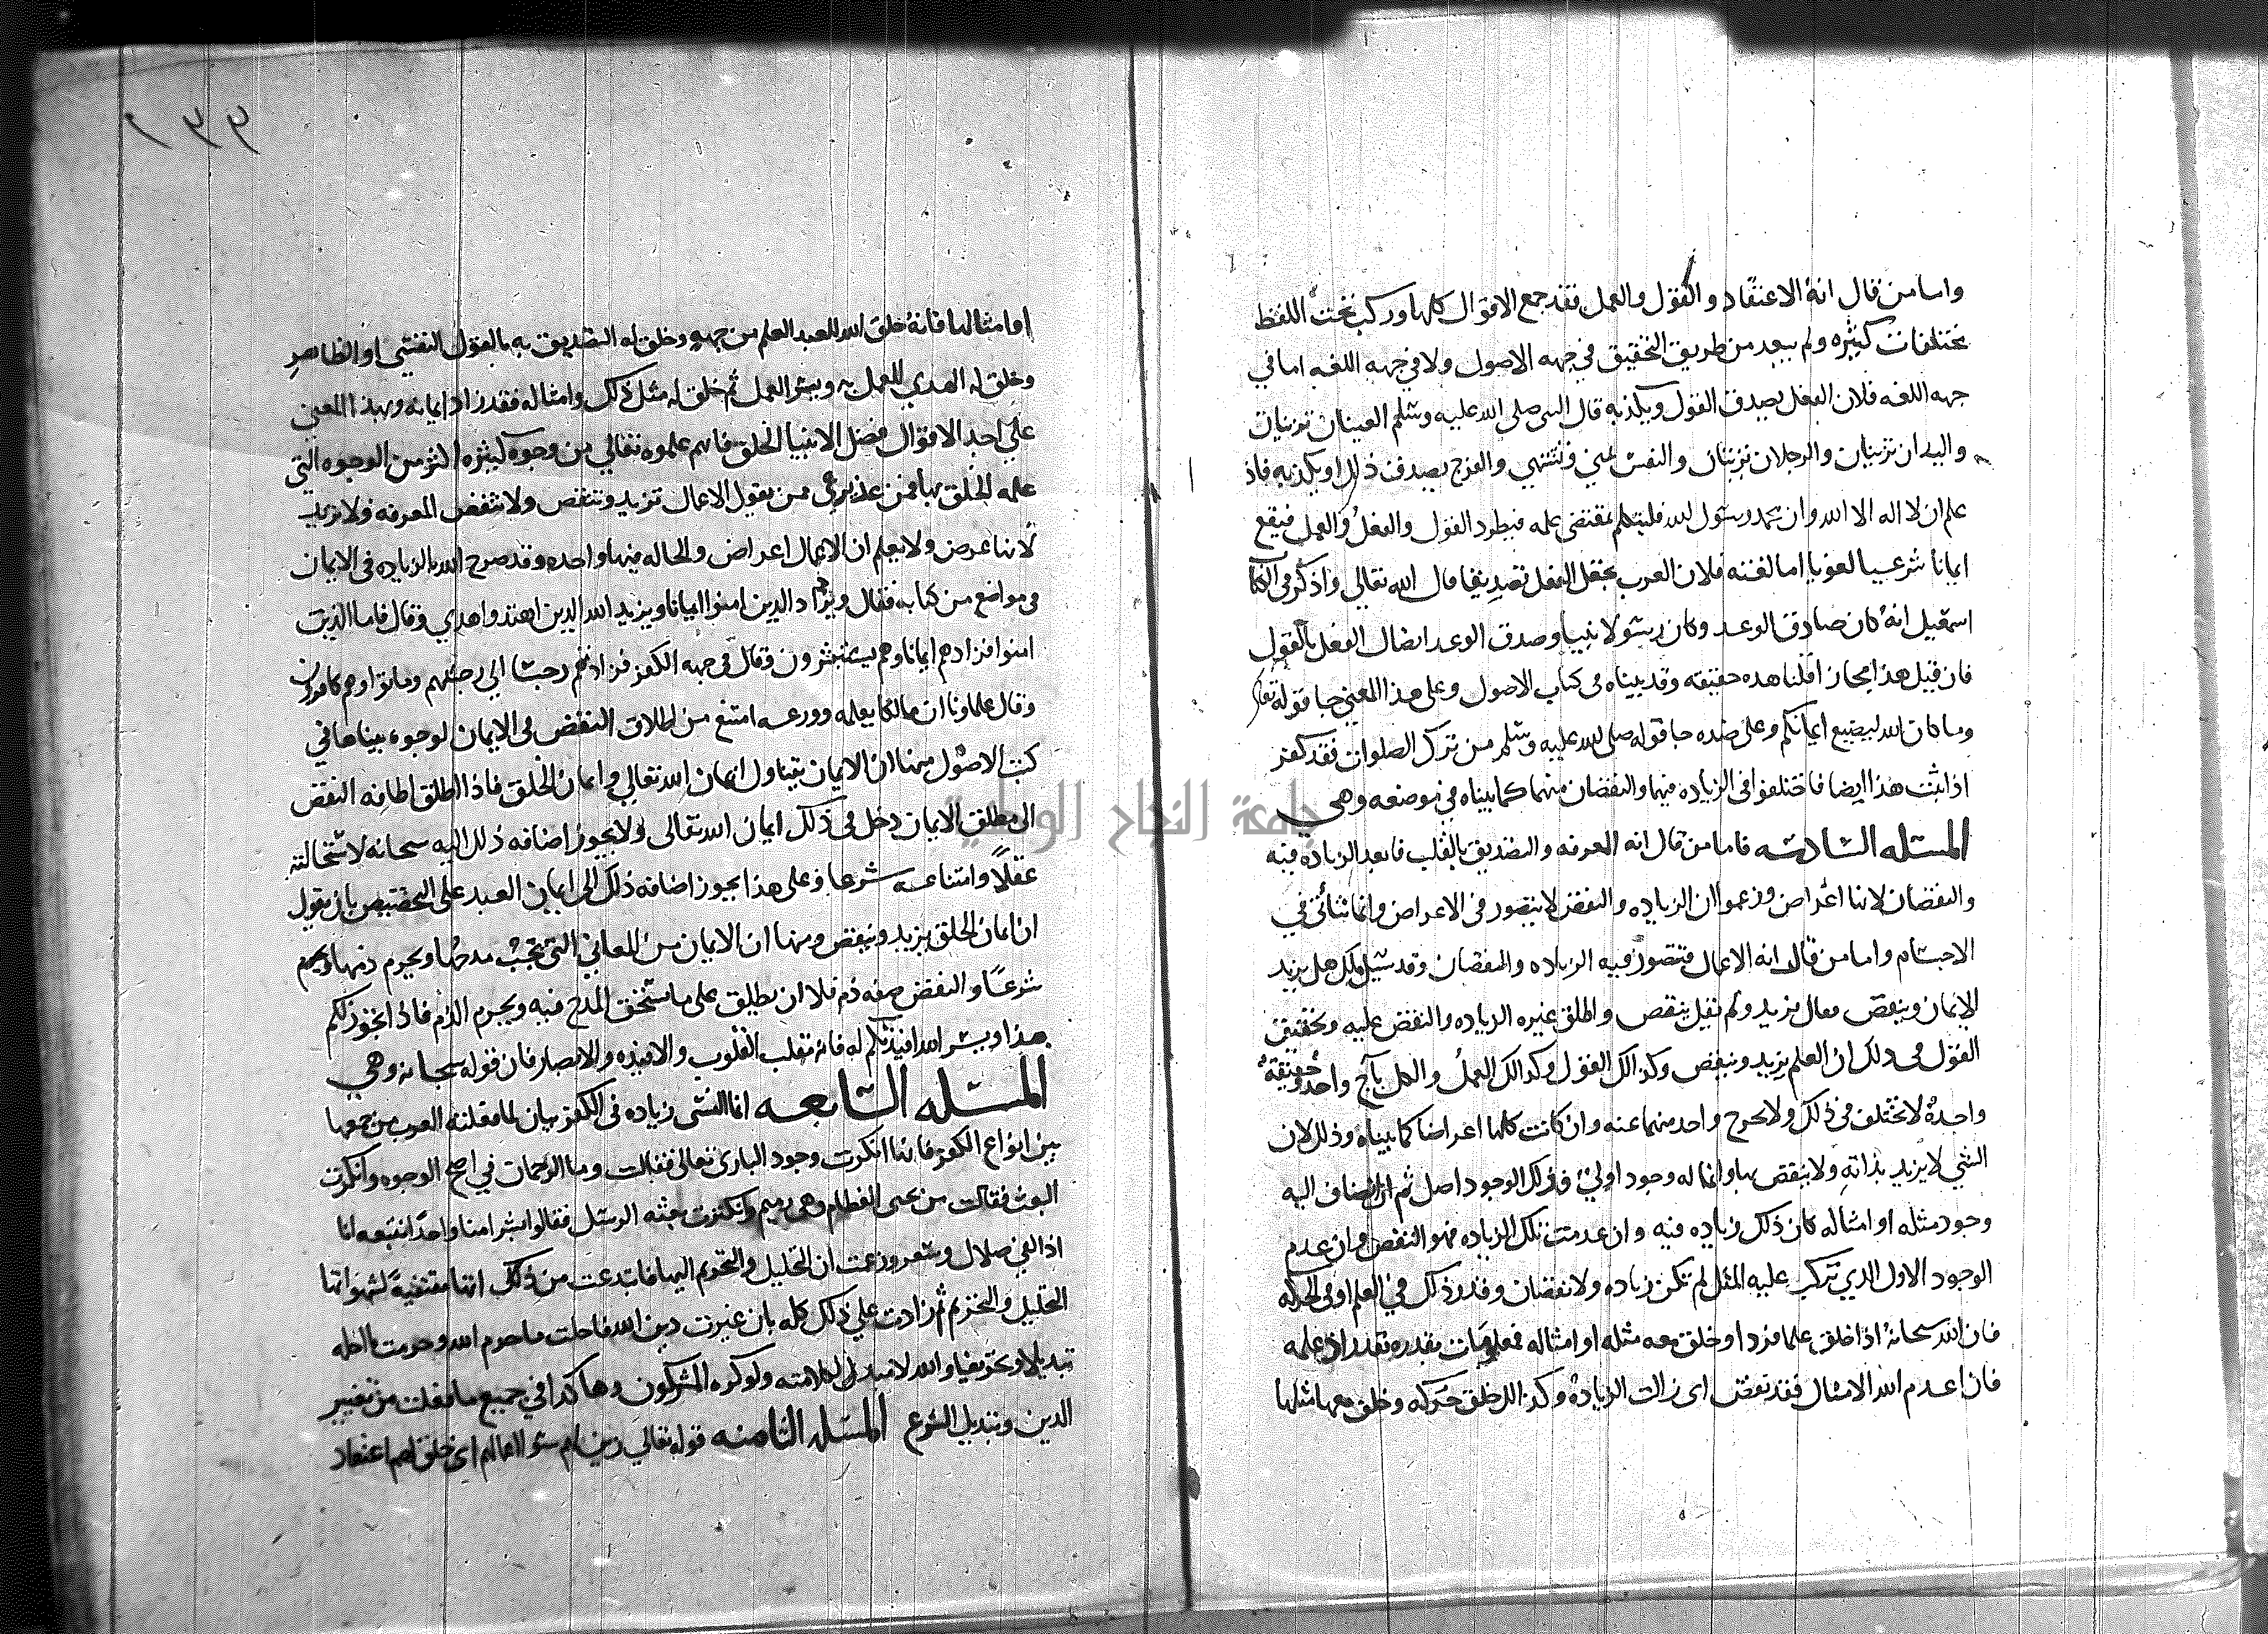 واما من قال انه الاعتقاد والقول والعمل فقد جمع الاقوال كلها وركب تحت اللفظ
مختلفات كثيره ولم يبعد من طريق التحقيق في جهه الاصول ولا في جهه اللغه اما في
جهه اللغه فلان الفعل يصدق القول ويكذبه قال النبى صلى الله عليه وسلم العينان تزنيان
واليدان تزنيان والرجلان تزنيان والنفس تمني وتشتهي والفرج يصدق ذلك او يكذبه فاذ
علم ان لا اله الا الله وان محمد رسول الله فليتكلم بمقتضى علمه فيطرد القول والفعل والعمل فيقع
ايمانا شرعيا لغويا اما لغته فلان العرب تجعل الفعل تصديقا قال الله تعالى واذكر في الكتا
اسمعيل انه كان صادق الوعد وكان رسولا نبيا وصدق الوعد اتصال الفعل بالقول
فان قيل هذا مجاز قلنا هده حقيقه وقد بيناه في كتاب الاصول وعلى هذا المعنى جا قوله تعا
وما كان الله ليضيع ايمانكم وعلى ضده جا قوله صلى الله عليه وسلم من ترك الصلوات فقد كفر
اذا ثبت هذا ايضا فاختلفوا في الزياده فيها والنقصان منها كما بيناه في موضعه وهى
المسئله السادسه فاما من قال انه المعرفه والتصديق بالقلب فابعد الزياده فيه
والنقصان لانها اعراض وزعموا ان الزياده والنقص لا يتصور في الاعراض وانما تتأتى في
الاجسام واما من قال انه الاعمال فتتصور فيه الزياده والنقصان وقد سيل مالك هل يزيد
الايمان وينقص فقال يزيد ولم يقل ينقص واطلق غيره الزياده والنقص عليه وتحقيق
القول في ذلك ان العلم يزيد وينقص وكذلك القول وكذلك العمل والكل يأتي واحد وحقيقة
واحدة لا تختلف في ذلك ولا يخرج واحد منهما عنه وان كانت كلها اعراضا كما بيناه وذلك لان
الشي لا يزيد بذاته ولا ينقص بها وانما له وجود اولي فذلك الوجود اصل ثم اذا انضاف اليه
وجود مثله او امثاله كان ذلك زياده فيه وان عدمت تلك الزياده فهو النقص وان عدم
الوجود الاول الذي تركب عليه المثل لم تكن زياده ولا نقصان وقدر ذلك في العلم او في الحركه
فان الله سبحانه اذا خلق علما فردا وخلق معه مثله او امثاله فمعلومات بقدره فقد زاد علمه
فان اعدم الله الامثال فقد نقص اى زالت الزياده وكذلك خلق حركه وخلق معها مثلها
١٣٣
او امثالها فانه خلق الله للعبد العلم من جهه وخلق له التصديق به بالقول النفسي او الظاهر
وخلق له الهدي للعمل به ويسر العمل ثم خلق له مثل ذلك وامثاله فقد زاد ايمانه وبهذا المعنى
على احد الاقوال فضل الانبيا الخلق فانهم علموه تعالى من وجوه كثيره اكثر من الوجوه التي
علمه الخلق بها فمن عذيرى ممن يقول الاعمال تزيد وتنقص ولا تنقص المعرفه ولا تزيد
لانها عرض ولا يعلم ان الاعمال اعراض والحاله فيها واحده وقد صرح الله بالزياده في الايمان
في مواضع من كتابه فقال ويزداد الذين امنوا ايمانا ويزيد الله الذين اهتدوا هدي وقال فاما الذين
امنوا فزادهم ايمانا وهم يستبشرون وقال في جهه الكفر فزادتهم رجسا الى رجسهم وماتوا وهم كافرون
وقال علماونا ان مالكا بعلمه وورعه امتنع من اطلاق النقص في الايمان لوجوه بيناها في
كتب الاصول منها ان الايمان يتناول ايمان الله تعالى وايمان الخلق فاذا اطلق اضافه النقص
الى مطلق الايمان دخل في ذلك ايمان الله تعالى ولا يجوز اضافه ذلك اليه سبحانه لاستحالته
عقلا وامتناعه شرعا وعلى هذا يجوز اضافه ذلك الى ايمان العبد على التخصيص بان يقول
ان ايمان الخلق يزيد وينقص ومنها ان الايمان من المعاني التي يجب مدحها ويحرم ذمها
شرعا والنقص صفه ذم فلا ان يطلق على ما يستحق المدح فيه ويحرم الذم فاذا تحرر لكم
هذا ويسر الله افئدتكم له فانه مقلب القلوب والافئده والابصار فان قوله سبحانه وهي
المسئله السابعه انما النسى زياده في الكفر بيان لما فعلته العرب من جمعها
بين انواع الكفر فانها انكرت وجود البارى تعالى فقالت وما الرحمان في اصح الوجوه وانكرت
البعث فقالت من يحيى العظام وهى رميم وانكرت بعثه الرسل فقالوا ابشرا منا واحدا نتبعه انا
اذا لفي ضلال وسعر وزعمت ان التحليل والتحريم اليها فابتدعت من ذلك اتها مقتفية لشهواتها
التحليل والتحريم ثم زادت علي ذلك كله بان غيرت دين الله فاحلت ما حرم الله وحرمت ما احله
تبديلا وتحريفا والله لا مبدل لكلامته ولو كره المشركون وهاكدا في جميع ما فعلت من تغيير
الدين وتبديل الشرع المسئله الثامنه قوله تعالى زين لهم سو اعمالهم اي خلق لهم اعتقاد
جامعة النجاح الوطنية